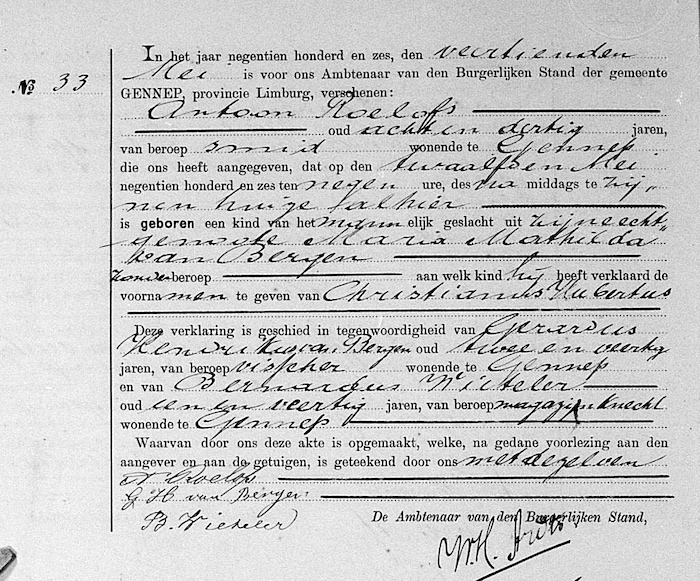 In het jaar negentien honderd en zes, den veertienden
No 33
Mei is voor ons Ambtenaar van den Burgerlijken Stand der gemeente
GENNEP, provincie Limburg, verschenen:
Antoon Roelofs
oud acht en dertig jaren,
van beroep smid wonende te Gennep
die ons heeft aangegeven, dat op den twaalfden Mei
negentien honderd en zes ten negen ure, des na middags te zij„
nen huize alhier
is geboren een kind van het mannelijk geslacht uit zijne echt„
genoote Maria Mathilda
van Bergen
zonder beroep aan welk kind hij heeft verklaard de
voornamen te geven van Christianus Hubertus
Deze verklaring is geschied in tegenwoordigheid van Gerardus
Hendrikus van Bergen oud twee en veertig
jaren, van beroep visscher wonende te Gennep
en van Bernardus Wieteler
oud een en veertig jaren, van beroep magazijnknecht
wonende te Gennep
Waarvan door ons deze akte is opgemaakt, welke, na gedane voorlezing aan den
aangever en aan de getuigen, is geteekend door ons met dezelven
A Roelofs
G H van Bergen
B. Wieteler De Ambtenaar van den Burgerlijken Stand,
W.H.